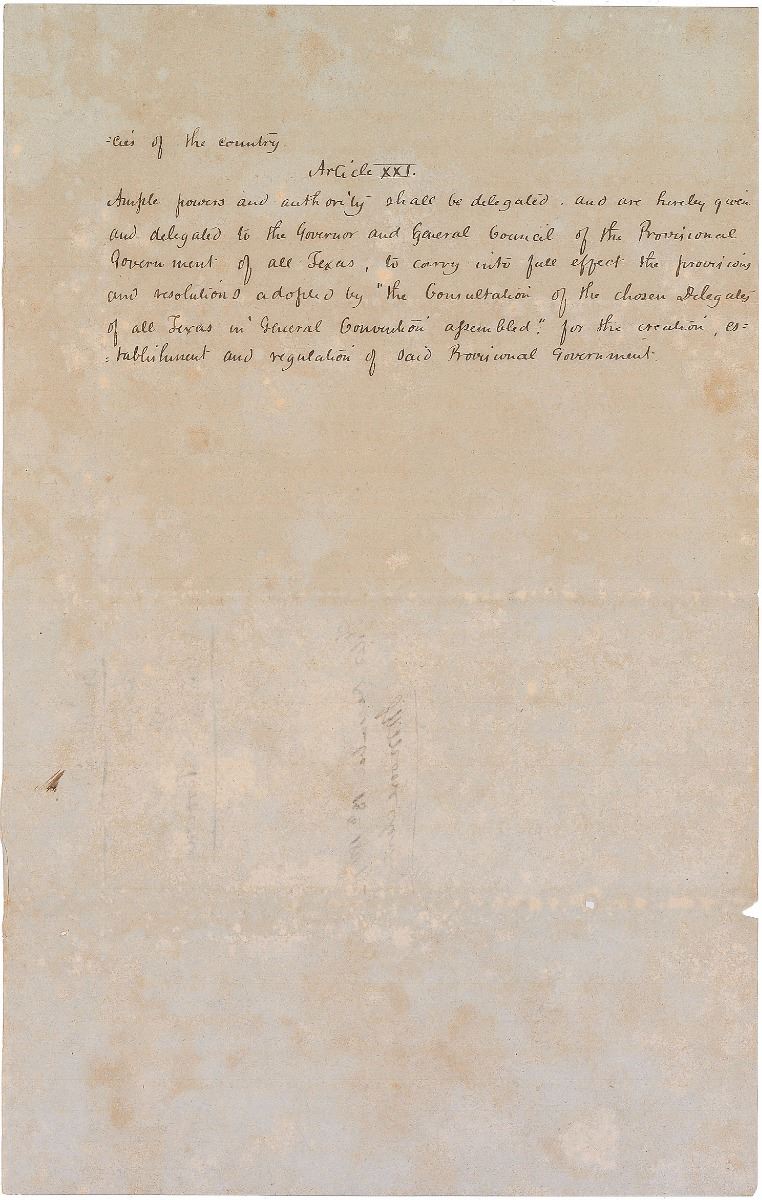 :cies of the country
Article XXI.
Ample powers and authority shall be delegated. and are hereby given
and delegated to the Governor and General Council of the Provisional
Government of all Texas, to carry into full effect the provisions
and resolutions adopted by "the Consultation of the chosen Delegates
of all Texas in General Convention assembled," for the creation, es=
:tablishment and regulation of said Provisional Government